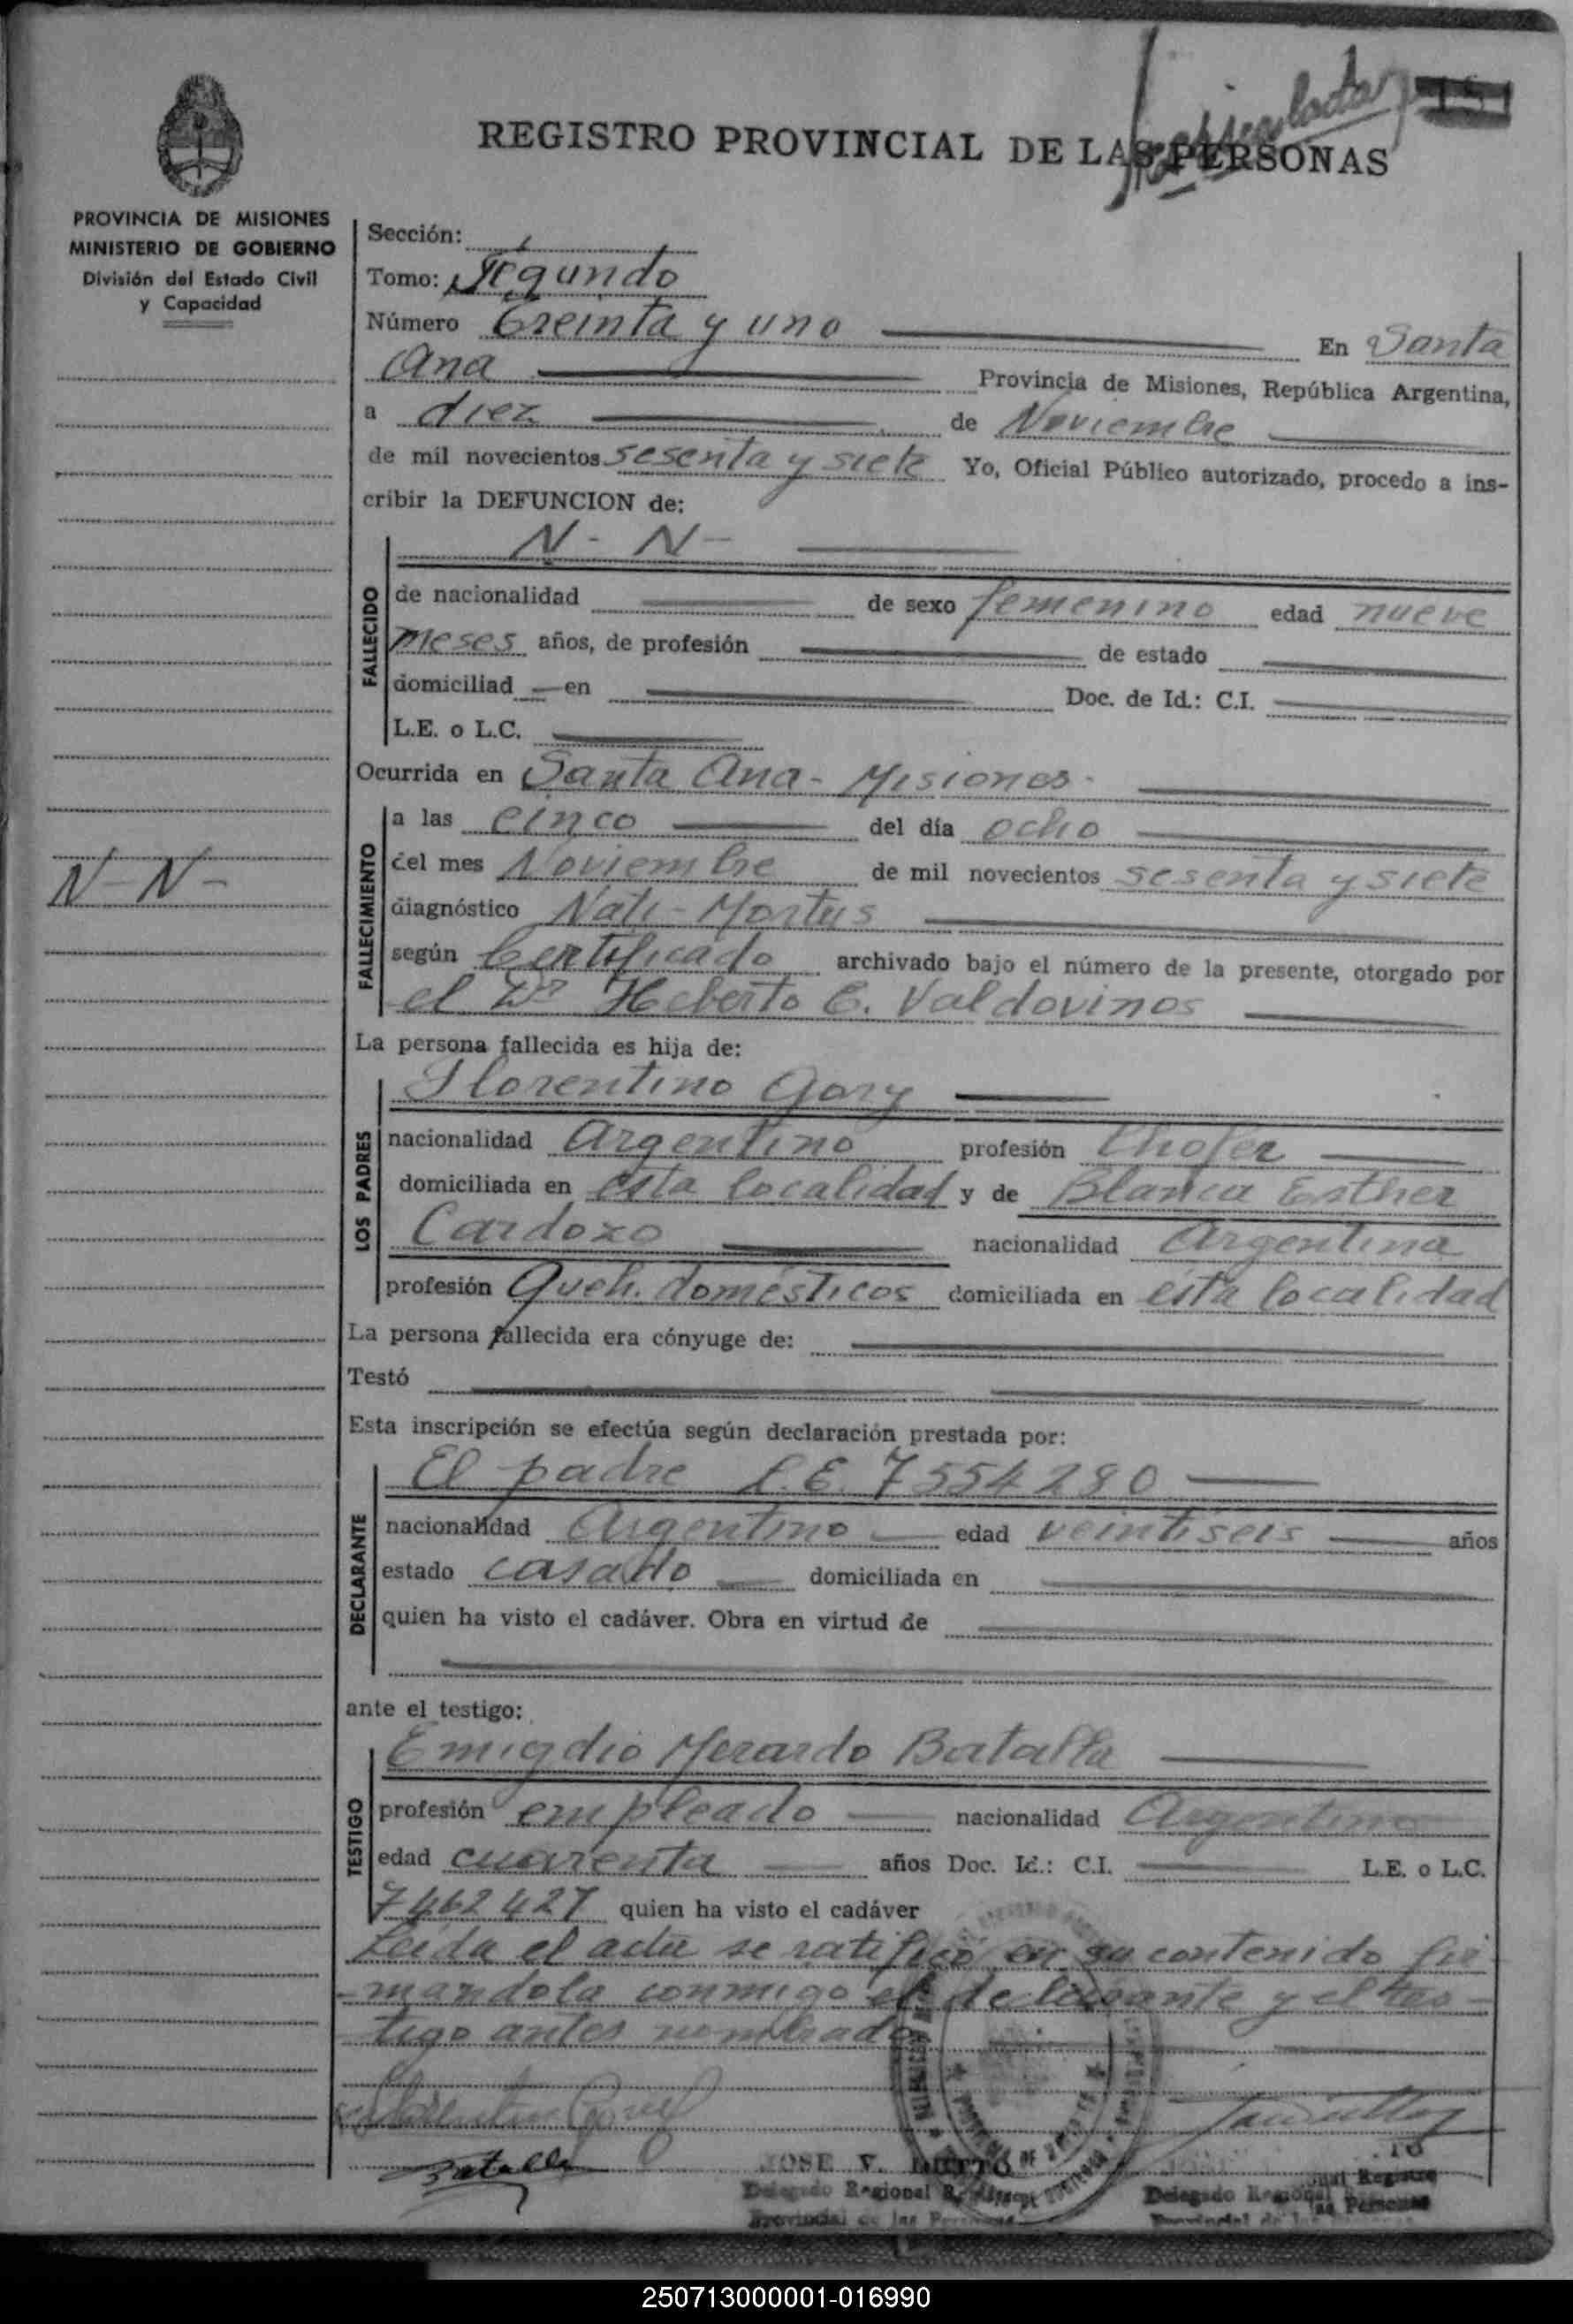 151
REGISTRO PROVINCIAL DE LAS PERSONAS
PROVINCIA DE MISIONES
MINISTERIO DE GOBIERNO
División del Estado Civil
y Capacidad
Sección:
Tomo: Segundo
Número Treinta y uno En Santa
Ana Provincia de Misiones, República Argentina,
a diez de Noviembre
de mil novecientos sesenta y siete Yo, Oficial Público autorizado, procedo a ins-
cribir la DEFUNCION de:
N - N -
FALLECIDO
de nacionalidad de sexo femenino edad nueve
meses años, de profesión de estado
domiciliad en Doc. de Id.: C.I.
L.E. o L.C.
Ocurrida en Santa Ana - Misiones -
N - N -
FALLECIMIENTO
a las cinco del día ocho
del mes Noviembre de mil novecientos sesenta y siete
diagnóstico Nati-Mortus
según Certificado archivado bajo el número de la presente, otorgado por
el Dr Heberto C. Valdovinos
La persona fallecida es hija de:
LOS PADRES
Florentino Gory
nacionalidad Argentino profesión Chofer
domiciliada en esta localidad y de Blanca Esther
Cardozo nacionalidad Argentina
profesión Queh. domésticos domiciliada en esta localidad
La persona fallecida era cónyuge de:
Testó
Esta inscripción se efectúa según declaración prestada por:
DECLARANTE
El padre L.E. 7554280
nacionalidad Argentino edad veintiseis años
estado casado domiciliada en
quien ha visto el cadáver. Obra en virtud de
ante el testigo:
TESTIGO
Emigdio Merardo Batalla
profesión empleado nacionalidad Argentino
edad cuarenta años Doc. Id.: C.I. L.E. o L.C.
7462427 quien ha visto el cadáver
Leida el acta se ratificó en su contenido fir
-mandola conmigo el declarante y el tes-
tigo antes nombrado
Batalla
JOSE V.
Delegado Regional
Provincial de las Personas
Delegado Regional
Provincial de las
250713000001-016990